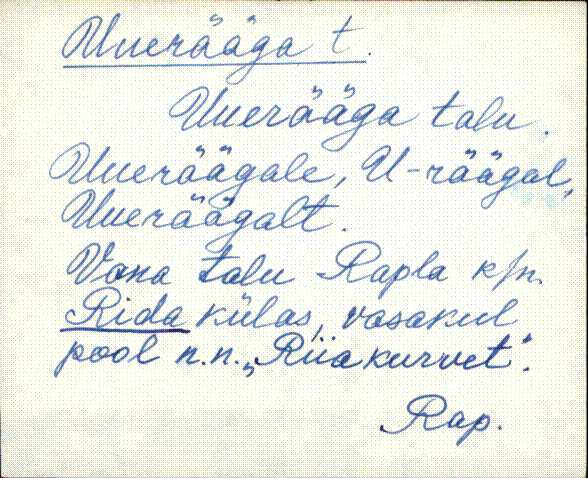 Uuerääga t.
Uuerääga talu.
Uueräägale, U-räägal,
Uueräägalt.
Vana talu Rapla khn.
Rida külas, vasakul
pool n.n. „Riia kurvet".
Rap.